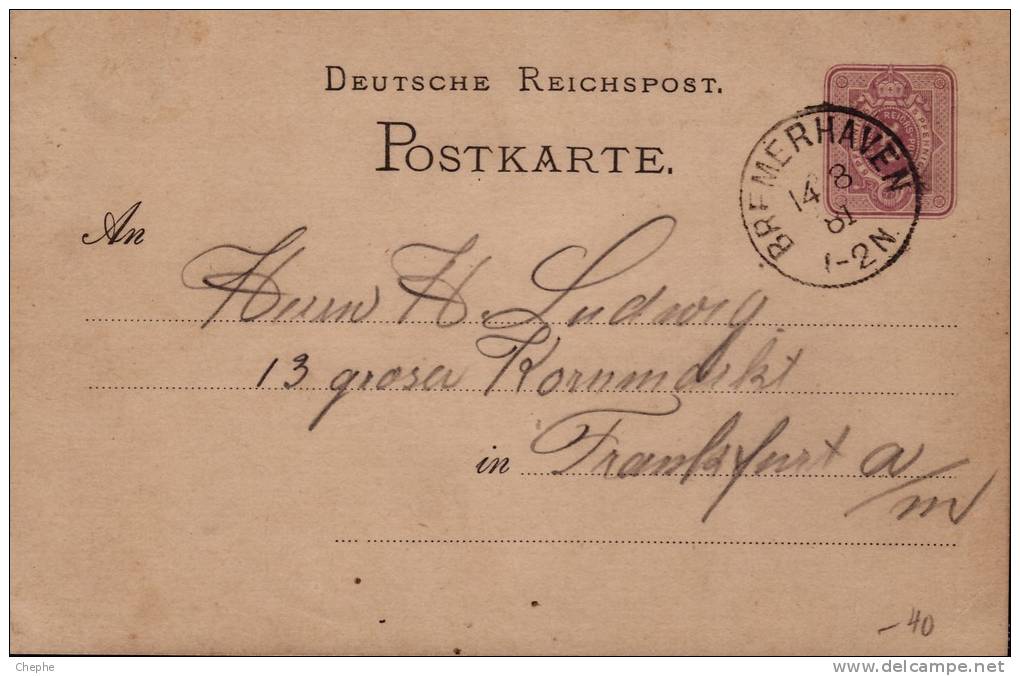 DEUTSCHE REICHSPOST.
POSTKARTE.
BREMERHAVEN
14 8
81
1-2N.
An
Herrn H. Ludwig
13 groser Kornmarkt
in Frankfurt a/m
-40
Chephe
www.delcampe.net